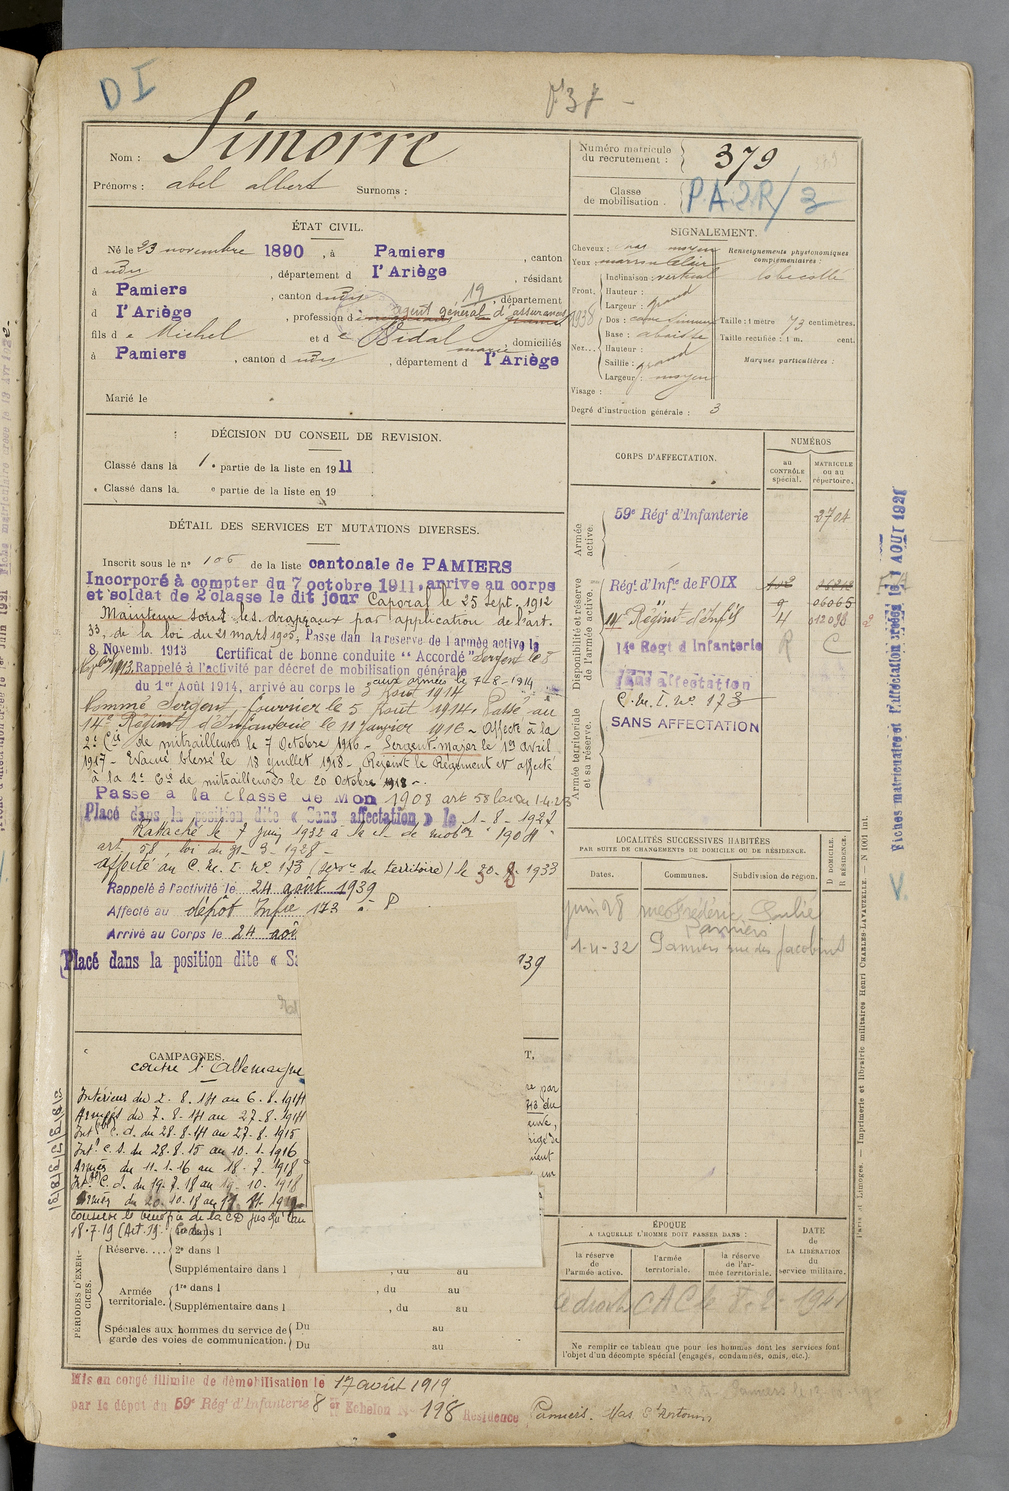 D I
Nom : Simorre
Prénoms : abel albert Surnoms :
Numéro matricule du recrutement : 379
Classe de mobilisation . PA2R/3
ÉTAT CIVIL.
Né le 23 novembre 1890, à Pamiers, canton
dudit, département d l'Ariège, résidant
à Pamiers, canton dudit, 19 département
d l'Ariège, profession d agent général d'assurances
fils de Michel et de Vidal marie, domiciliés
à Pamiers, canton dudit, département d l'Ariège
Marié le
SIGNALEMENT.
Cheveux : moyen
Yeux : marron clair
Front. Inclinaison : vertical
Hauteur :
Largeur : grand
Nez. Dos :
Base : abaissée
Hauteur :
Saillie : grand
Largeur : moyen
Visage :
Renseignements physionomiques complémentaires :
Taille : 1 mètre 73 centimètres.
Taille rectifiée : 1 m. cent.
Marques particulières :
Degré d'instruction générale : 3
DÉCISION DU CONSEIL DE REVISION.
Classé dans la 1e partie de la liste en 1911
Classé dans la e partie de la liste en 19
DÉTAIL DES SERVICES ET MUTATIONS DIVERSES.
Inscrit sous le n° 106 de la liste cantonale de PAMIERS
Incorporé à compter du 7 octobre 1911, arrive au corps
et soldat de 2 classe le dit jour Caporal le 25 Sept. 1912
Maintenu sous les drapeaux par application de l'art.
33, de la loi du 21 mars 1905, Passe dan la reserve de l armée active le
8 Novemb. 1913 Certificat de bonne conduite "Accordé" Sergent le 8
1913. Rappelé à l'activité par décret de mobilisation générale
aux armées le 7-8-1914
du 1er Août 1914, arrivé au corps le 3 Août 1914
Nommé Sergent-fourrier le 5 Août 1914. Passé au
14e Régiment d'Infanterie le 11 Janvier 1916 - Affecté à la
2e Cie de mitrailleuses le 7 Octobre 1916 - Sergent-major le 19 avril
1917 - Evacué blessé le 18 juillet 1918 - Rejoint le Régiment et affecté
à la 2e Cie de mitrailleuses le 20 Octobre 1918 -
Passé à la classe de Mon 1908 art 58 loi du 1-4-23
Placé dans la position dite « Sans affectation » le 1-8-1927
Rattaché le 7 juin 1932 à la cl. de mobon "1904"
art. 58 loi du 31-3-1928 -
affecté au C.M.I. N° 173 (serv. du territoire) le 20-8-1933
Rappelé à l'activité le 24 août 1939
Affecté au dépôt Infie 173
Arrivé au Corps le 24 aoû
Placé dans la position dite « Sa
939
CORPS D'AFFECTATION.
NUMÉROS
au CONTRÔLE spécial.
MATRICULE ou au répertoire.
Armée active.
59e Régt d'Infanterie 2704
Disponibilité et réserve de l'armée active.
Régt d'Infie de FOIX
9 06065
14e Régiment d'Infie 4 012098
14e Régt d Infanterie R C
Sans Affectation
C.M.I. N° 173
SANS AFFECTATION
Armée territoriale et sa réserve.
LOCALITÉS SUCCESSIVES HABITÉES
PAR SUITE DE CHANGEMENTS DE DOMICILE OU DE RÉSIDENCE.
Dates. Communes. Subdivision de région. D DOMICILE. R RÉSIDENCE.
juin 28 rue Frédéric Soulié
Pamiers
1-4-32 Pamiers rue des Jacobins
CAMPAGNES.
contre l'Allemagne
Intérieur du 2.8.14 au 6.8.1914
Armées du 7-8-14 au 27-8-1914
Intr C.d. du 28.8.14 au 27-8-1915
Intr C.S. du 28.8.15 au 10.1.1916
Armées du 11-1-16 au 18-7-1918
Intr C.d. du 19-7-18 au 19-10-1918
Armées du 20-10-18 au
conserve le bénéfice de la CD jusqu'au
18-7-19
PÉRIODES D'EXERCICES.
Réserve....
2e dans l
Supplémentaire dans l , du au
Armée territoriale.
1re dans l , du au
Supplémentaire dans l , du au
Spéciales aux hommes du service de garde des voies de communication.
Du au
Du au
ÉPOQUE
A LAQUELLE L'HOMME DOIT PASSER DANS :
la réserve de l'armée active.
l'armée territoriale.
la réserve de l'armée territoriale.
DATE de LA LIBÉRATION du service militaire.
a droit CAC le 8-2-1941
Ne remplir ce tableau que pour les hommes dont les services font
l'objet d'un décompte spécial (engagés, condamnés, omis, etc.).
Mis en congé illimité de démobilisation le 17 août 1919
par le dépôt du 59e Régt d'Infanterie 8e Echelon N° 198 Résidence Pamiers. Mas St Antonin
Paris et Limoges. — Imprimerie et librairie militaires Henri CHARLES-LAVAUZELLE. — N 1001 int.
Fiches matriculaire et d'affectation créées le 1 AOUT 1921